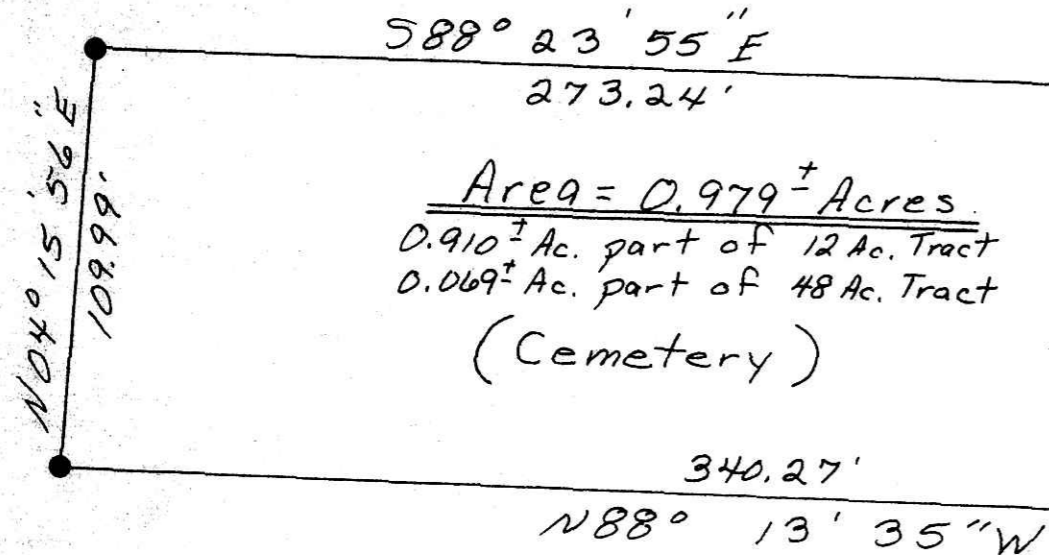 S88° 23' 55"E
273.24'
N04° 15' 56"E
109.99'
Area = 0.979± Acres.
0.910± Ac. part of 12 Ac. Tract
0.069± Ac. part of 48 Ac. Tract
(Cemetery)
340.27'
N88° 13' 35"W